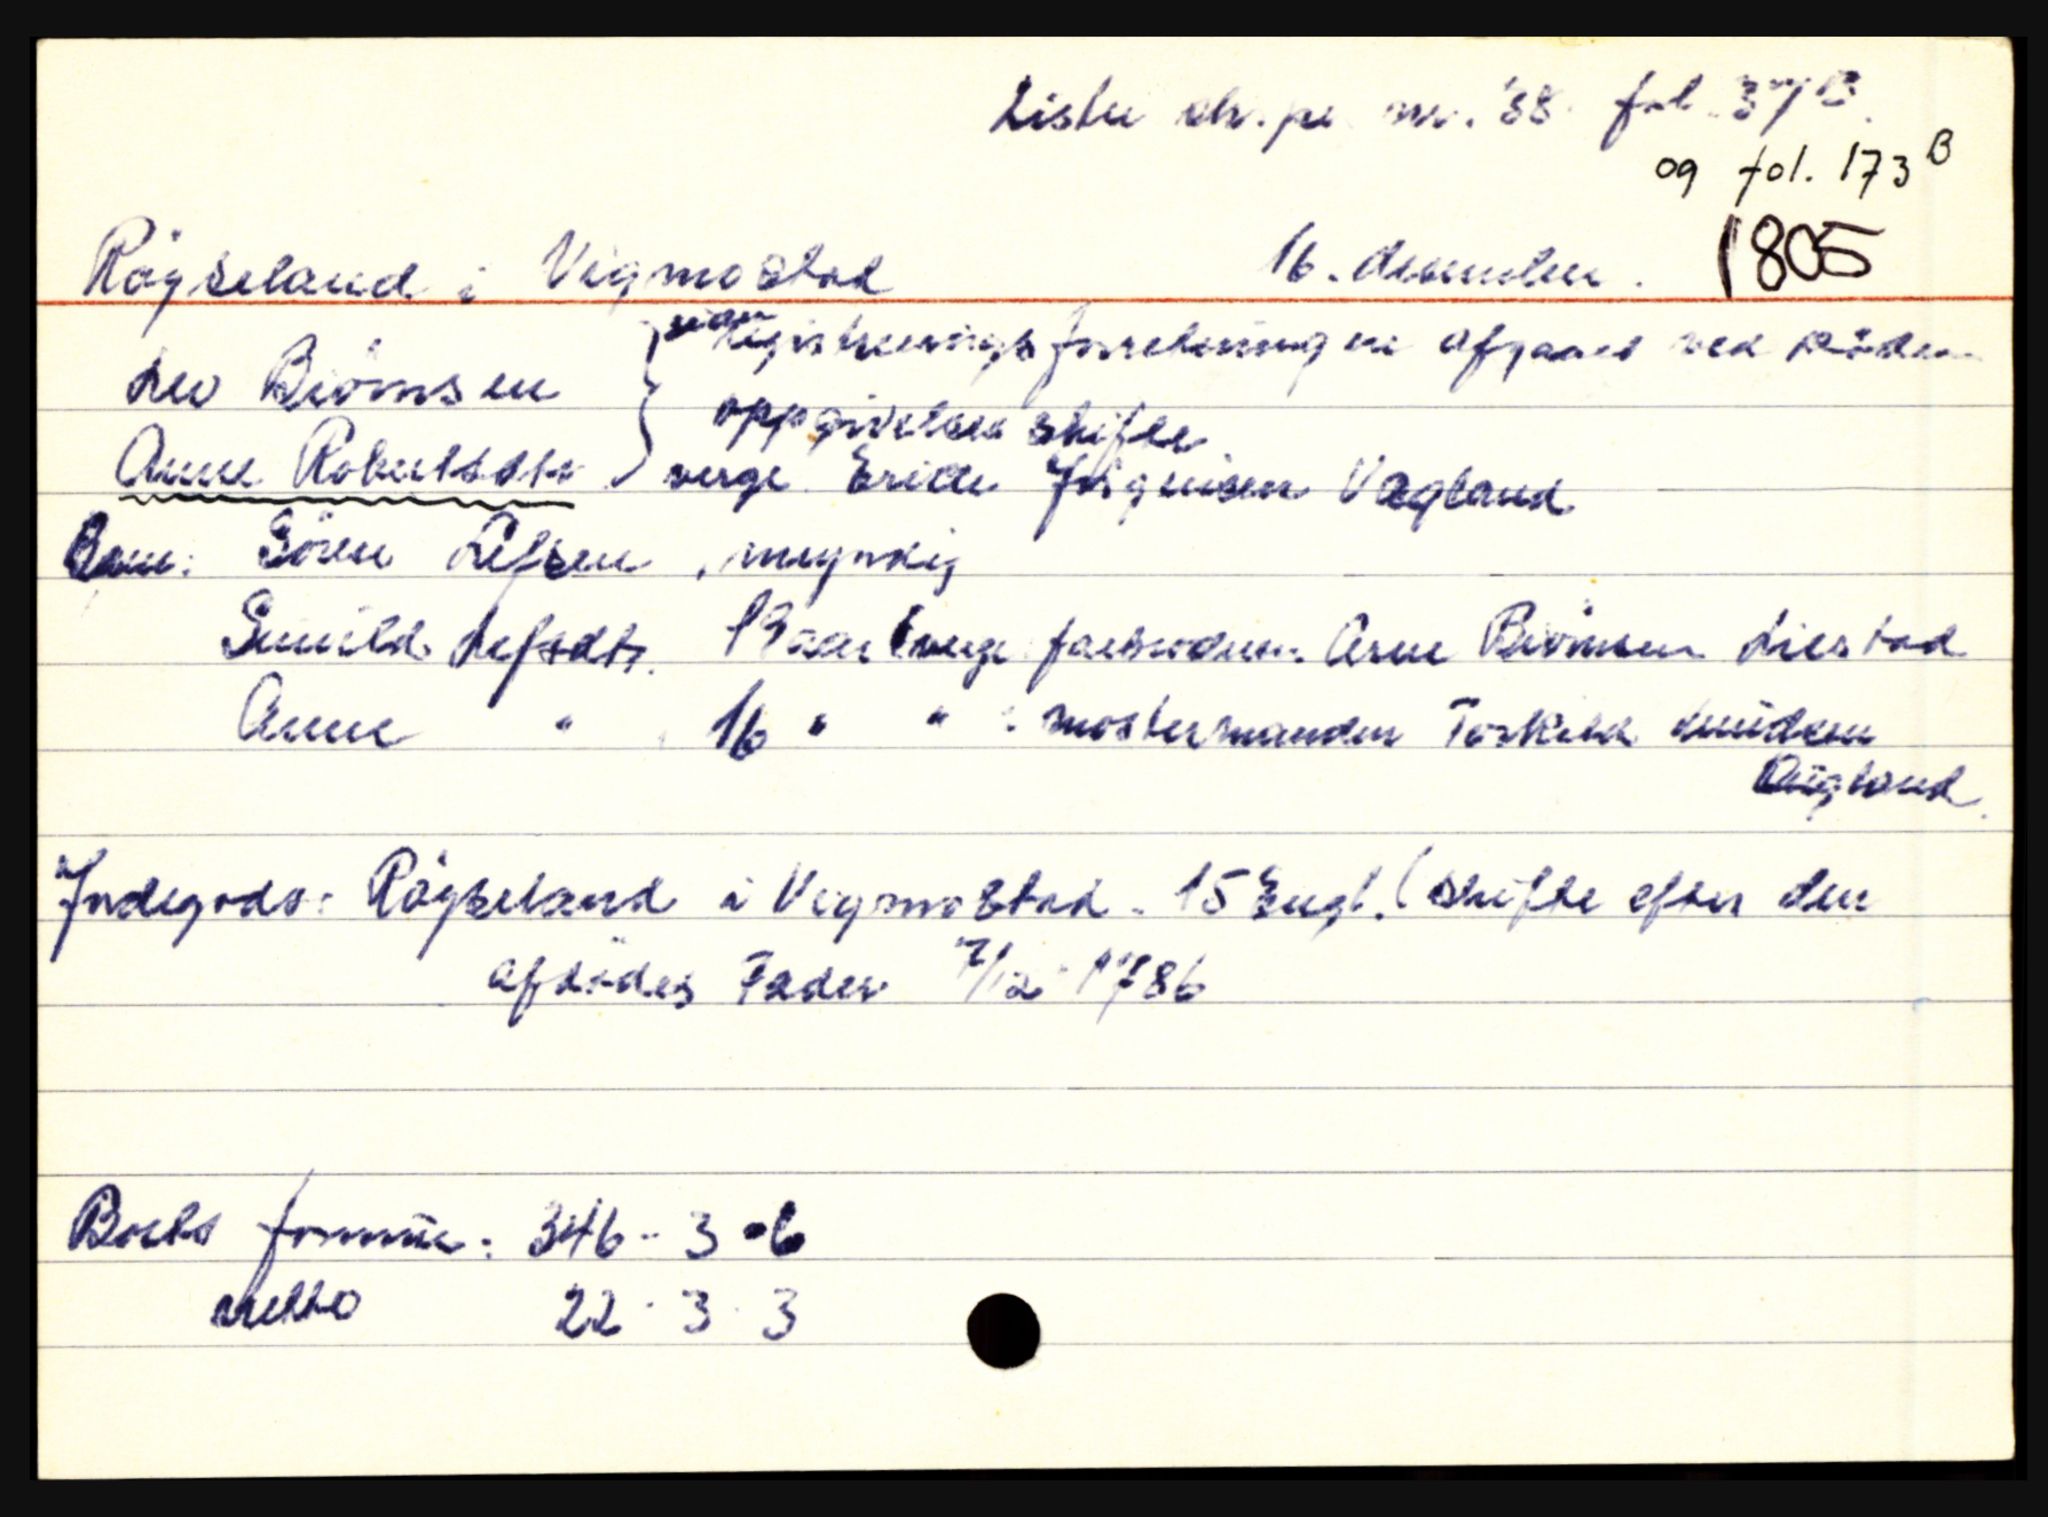 Lister sk.pr. nr. 38 fol. 37B.
og fol. 173 B
Røyseland i Vigmostad 16. desember. 1805
Lev Biörnsen } siden Registreringsforretningen afgaaet ved døden
oppgivelses skifte
Anne Robertsdtr. } verge Erich Jörgensen Vægland
Barn: Sören Lefsen, myndig
Gunild Lefsdtr. 18 aar (verge farbroderen Arne Biörnsen Liestad
Anne " 16 " " : mostermanden Torkild Knudsen
Augland.
Jndegods: Røyseland i Vigmostad - 15 Engl. (skifte efter den
afdödes Fader 7/12 1786
Boets formue: 346 - 3 - 6
netto 22 - 3 - 3